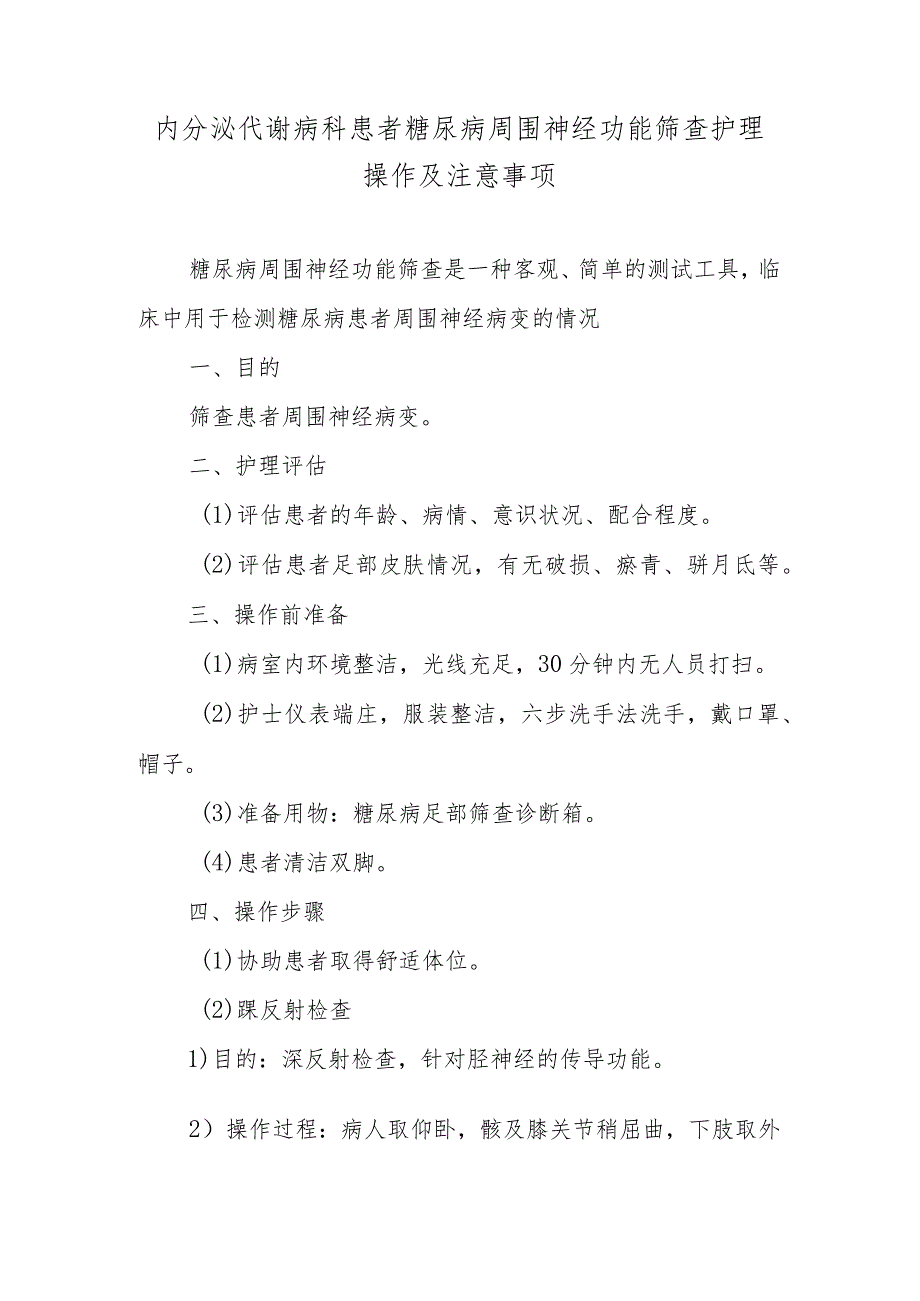 内分泌代谢病科患者糖尿病周围神经功能筛查护理
操作及注意事项
糖尿病周围神经功能筛查是一种客观、简单的测试工具，临
床中用于检测糖尿病患者周围神经病变的情况
一、目的
筛查患者周围神经病变。
二、护理评估
(1)评估患者的年龄、病情、意识状况、配合程度。
(2)评估患者足部皮肤情况，有无破损、瘀青、骈月氐等。
三、操作前准备
(1)病室内环境整洁，光线充足，30分钟内无人员打扫。
(2)护士仪表端庄，服装整洁，六步洗手法洗手，戴口罩、
帽子。
(3)准备用物：糖尿病足部筛查诊断箱。
(4)患者清洁双脚。
四、操作步骤
(1)协助患者取得舒适体位。
(2)踝反射检查
1)目的：深反射检查，针对胫神经的传导功能。
2）操作过程：病人取仰卧，骸及膝关节稍屈曲，下肢取外